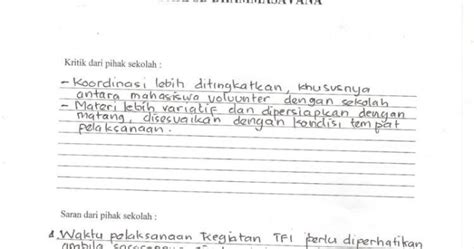 Kritik dari pihak sekolah :
- Koordinasi lebih ditingkatkan, khususnya
antara mahasiswa voluunter dengan sekolah
- Materi lebih variatif dan dipersiapkan dengan
matang, disesuaikan dengan kondisi tempat
pelaksanaan.
Saran dari pihak sekolah :
Waktu pelaksanaan kegiatan TFI perlu diperhatikan